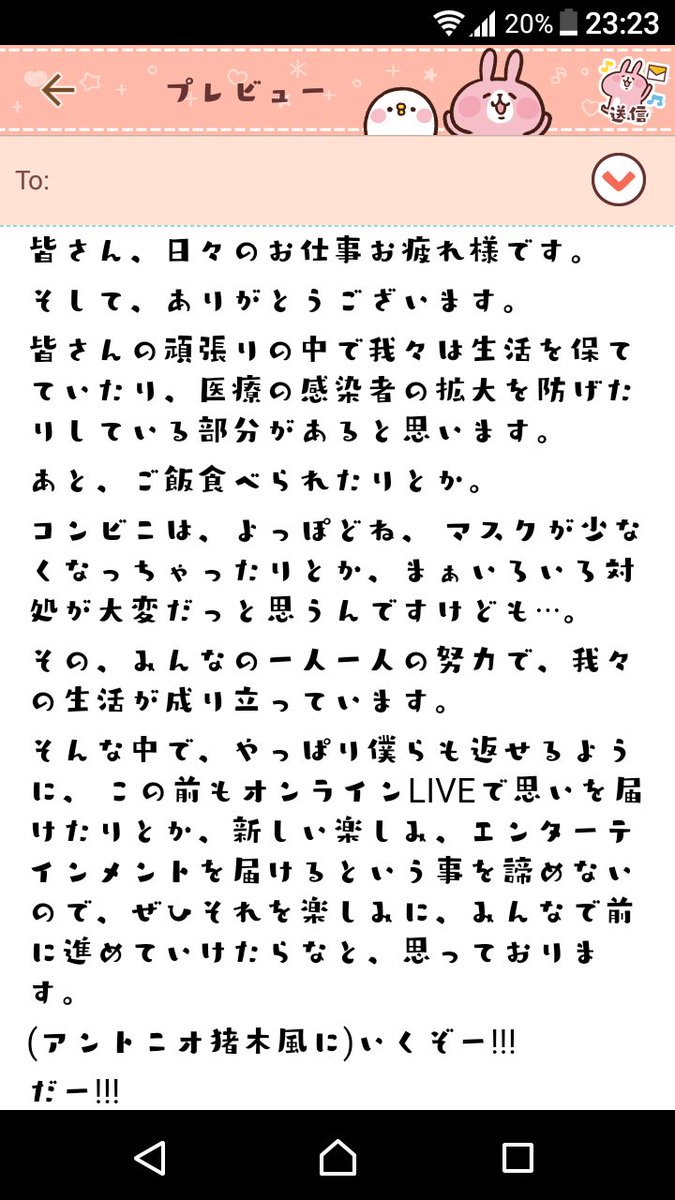 20% 23:23
プレビュー
送信
To:
皆さん、日々のお仕事お疲れ様です。
そして、ありがとうございます。
皆さんの頑張りの中で我々は生活を保て
ていたり、医療の感染者の拡大を防げた
りしている部分があると思います。
あと、ご飯食べられたりとか。
コンビニは、よっぽどね、 マスクが少な
くなっちゃったりとか、まぁいろいろ対
処が大変だっと思うんですけども…。
その、みんなの一人一人の努力で、我々
の生活が成り立っています。
そんな中で、やっぱり僕らも返せるよう
に、 この前もオンラインLIVEで思いを届
けたりとか、新しい楽しみ、エンターテ
インメントを届けるという事を諦めない
ので、ぜひそれを楽しみに、みんなで前
に進めていけたらなと、思っておりま
す。
(アントニオ猪木風に)いくぞー!!!
だー!!!